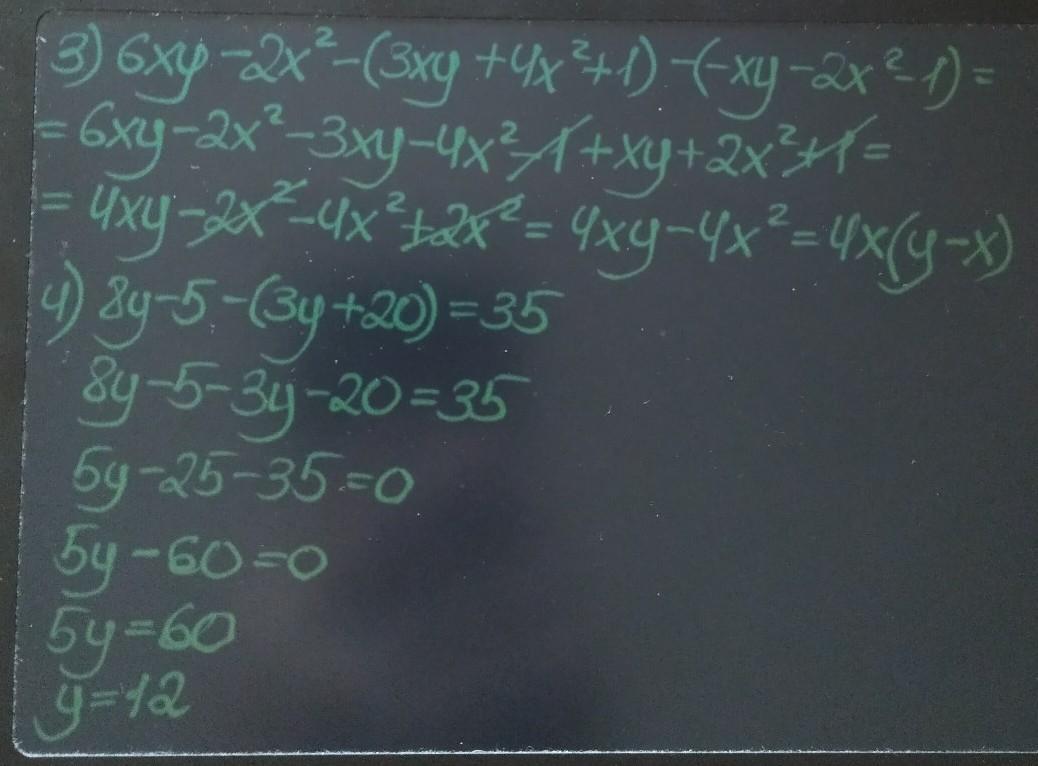 3) 6xy-2x²-(3xy+4x²+1)-(-xy-2x²-1)=
=6xy-2x²-3xy-4x²-1+xy+2x²+1=
=4xy-2x²-4x²+2x²=4xy-4x²=4x(y-x)
4) 8y-5-(3y+20)=35
8y-5-3y-20=35
5y-25-35=0
5y-60=0
5y=60
y=12